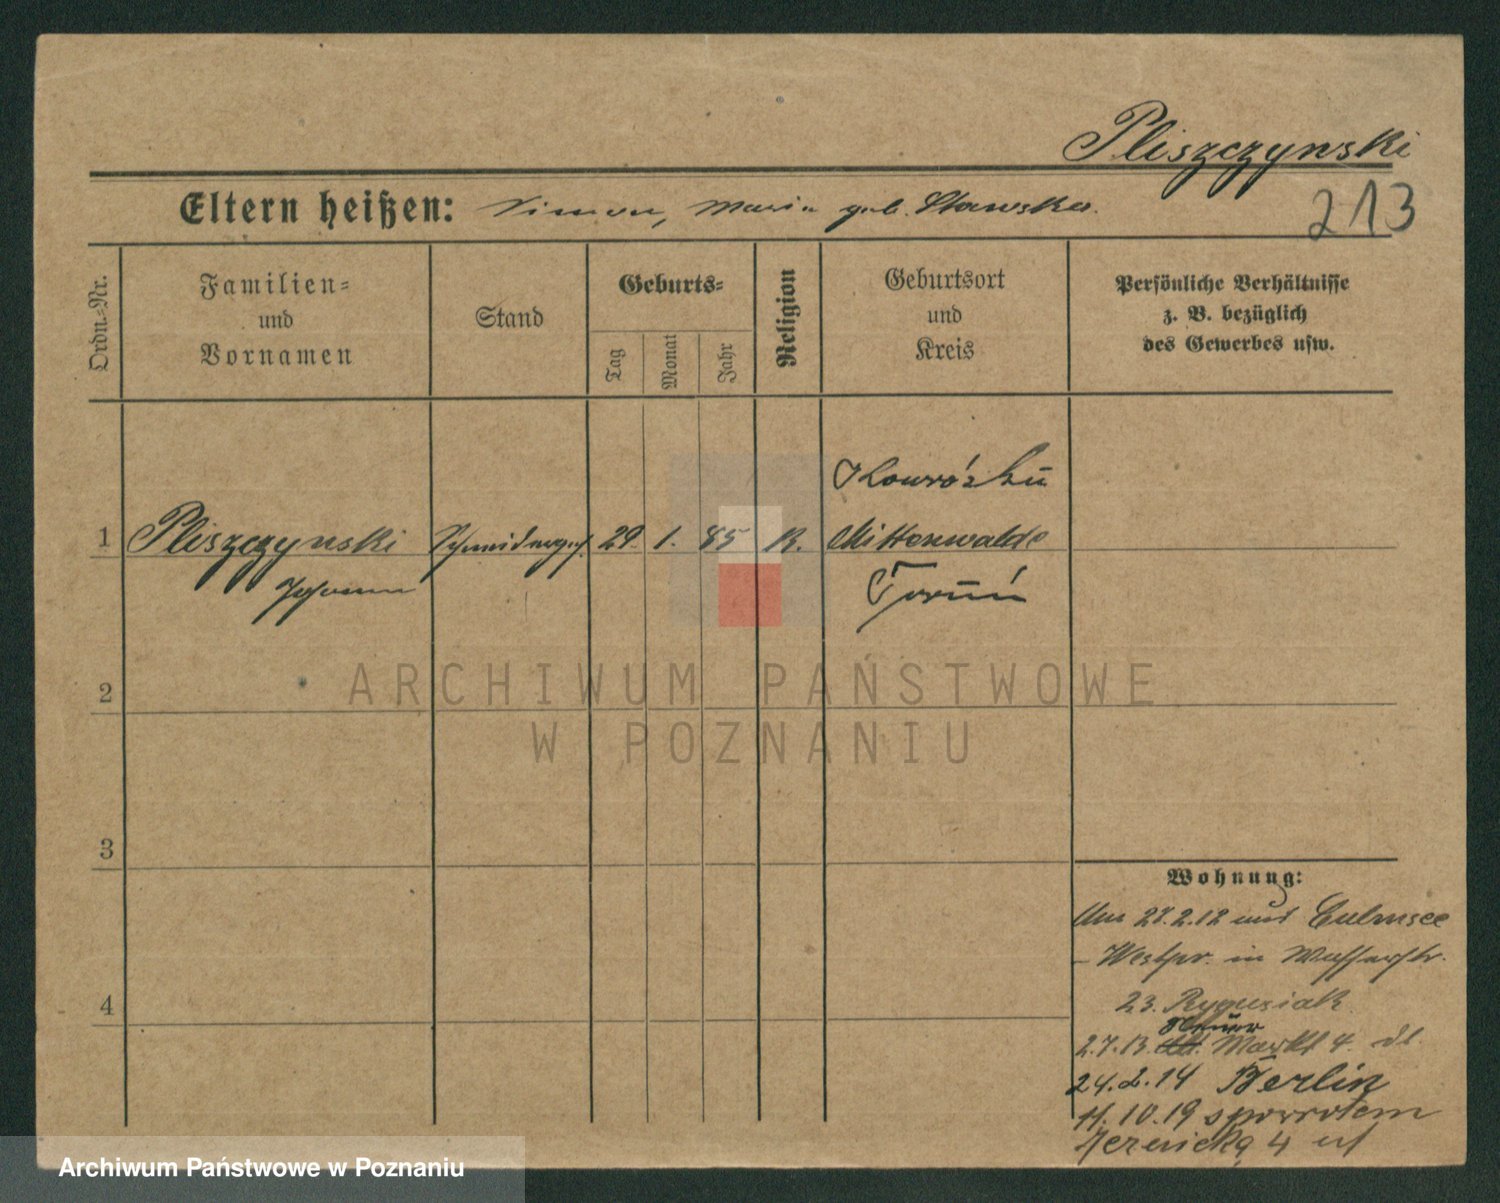 Pliszczynski
Eltern heißen: Simon, Maria geb. Stawska.
213
Ordn.-Nr.
Familien-
und
Vornamen
Stand
Geburts-
Tag
Monat
Jahr
Religion
Geburtsort
und
Kreis
Persönliche Verhältnisse
z. B. bezüglich
des Gewerbes usw.
1
Pliszczynski
Johann
Schneiderges.
29. 1. 85
K.
Mittenwalde
Toruń
2
3
4
Wohnung:
Am 28.2.12 aus Culmsee
Westpr. in Wasserstr.
23. Rygusiak
2.7.13. Neuer Markt 4.
24.2.14 Berlin
11.10.19 spowrotem
4
ARCHIWUM PAŃSTWOWE
W POZNANIU
Archiwum Państwowe w Poznaniu